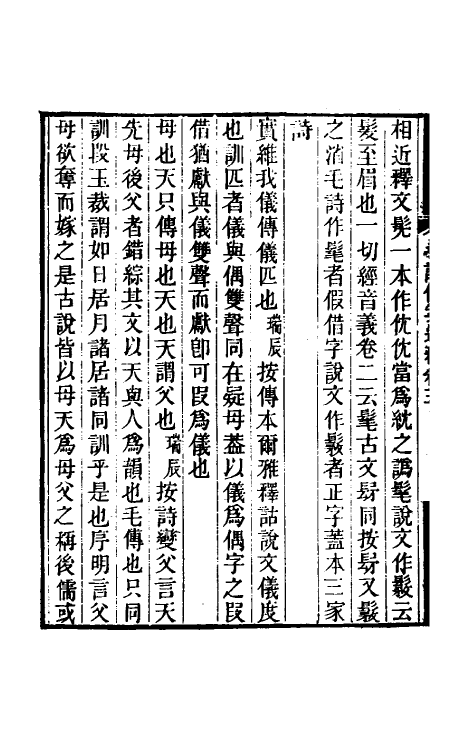 相近釋文髧一本作優優當爲紞之譌髦說文作髳云
髮至眉也一切經音義卷二云髦古文髳同按髳又髳
之消毛詩作髦者假借字說文作髳者正字蓋本三家
詩
實維我儀傳儀匹也瑞辰按傳本爾雅釋詁說文儀度
也訓匹者儀與偶雙聲同在疑母葢以儀爲偶字之叚
借猶獻與儀雙聲而獻卽可叚爲儀也
母也天只傳母也天也天謂父也瑞辰按詩變父言天
先母後父者錯綜其文以天與人爲韻也毛傳也只同
訓段玉裁謂如日居月諸居諸同訓乎是也序明言父
母欲奪而嫁之是古說皆以母天爲母父之稱後儒或